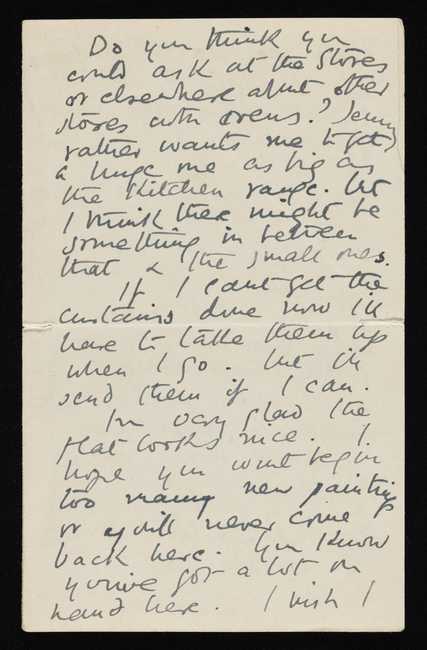 Do you think you
could ask at the Stores
or elsewhere about other
stoves with ovens? Jenny
rather wants me to get
a huge one as big as
the kitchen range. but
I think there might be
something in between
that & the small ones.
If I cant get the
curtains done now Ill
have to take them up
when I go. but Ill
send them if I can.
Im very glad the
flat looks nice. I
hope you wont begin
too many new paintings
or youll never come
back here. You know
youve got a lot on
hand here. I wish I